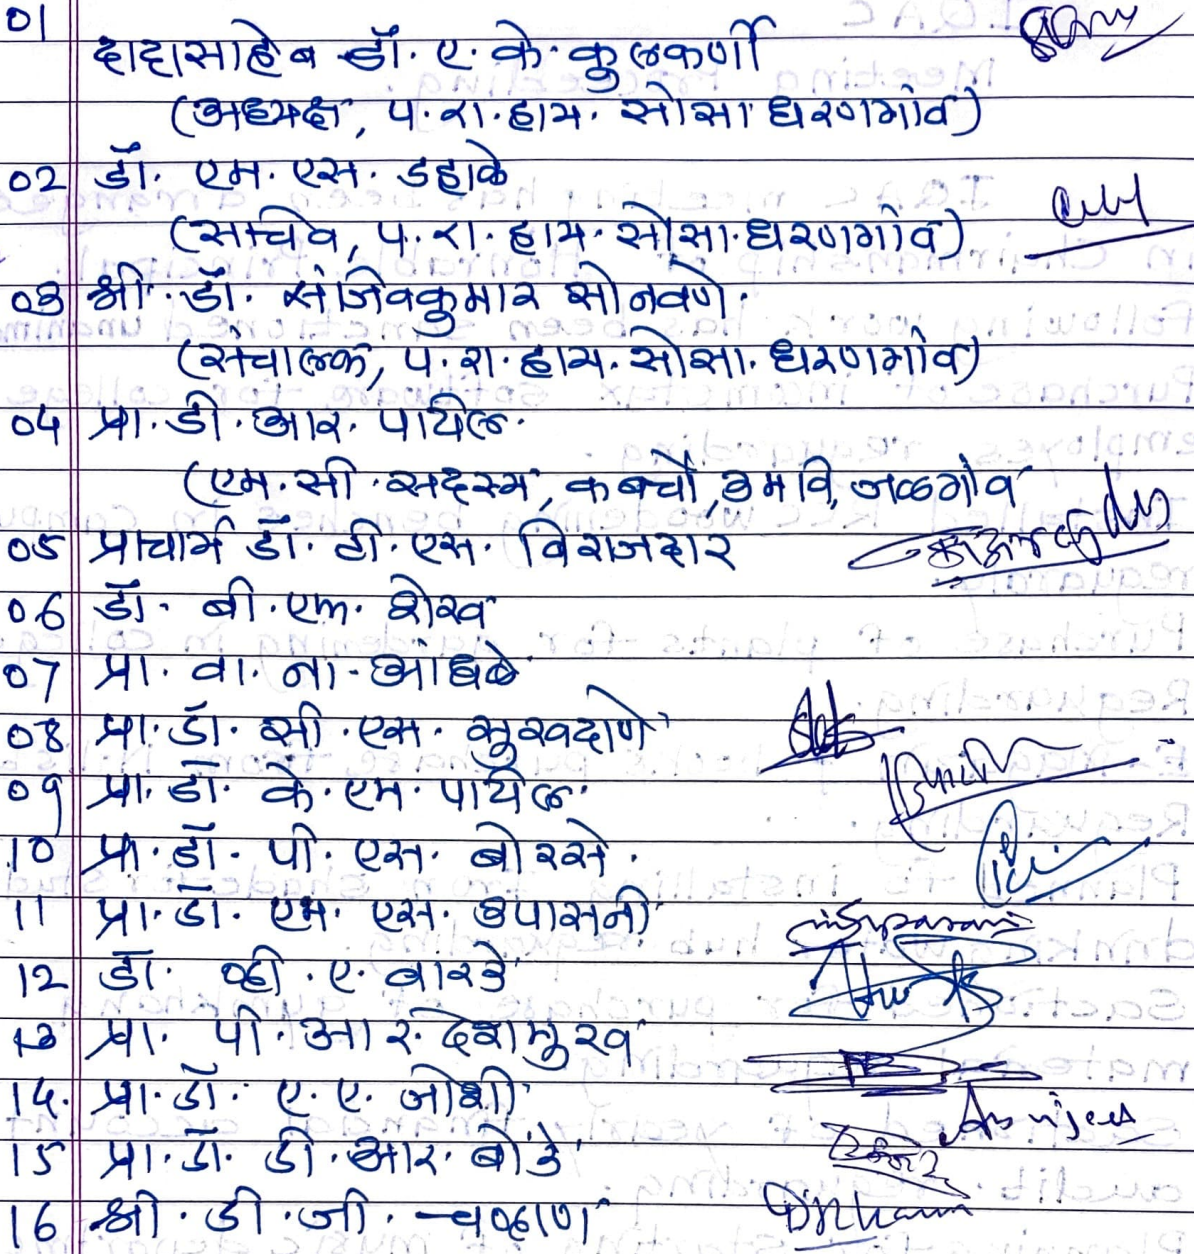 01
दादासाहेब डॉ. ए. के. कुलकर्णी
(अध्यक्ष, प. रा. हाय. सोसा धरणगांव)
02 डॉ. एम. एस. डहाके
(सचिव, प. रा. हाय. सोसा. धरणगांव)
03 श्री. डॉ. संजिवकुमार सोनवणे.
(संचालक, प. रा. हाय. सोसा. धरणगांव)
04 प्रा. डी. आर. पाटील.
(एम. सी. सदस्य, कबचौ, उमवि, जळगांव
05 प्राचार्य डॉ. टी. एस. बिराजदार
06 डॉ. बी. एम. शेख
07 प्रा. वा. ना. आंधळे
08 प्रा. डॉ. सी. एस. सुखदाणे
09 प्रा. डॉ. के. एम. पाटील.
10 प्रा. डॉ. पी. एस. बोरसे.
11 प्रा. डॉ. एम. एस. उपासनी
12 डॉ. व्ही. ए. वारडे
13 प्रा. पी. आर. देशमुख
14. प्रा. डॉ. ए. ए. जोशी
15 प्रा. डॉ. डी. आर. बोंडे
16 श्री. डी. जी. चव्हाण